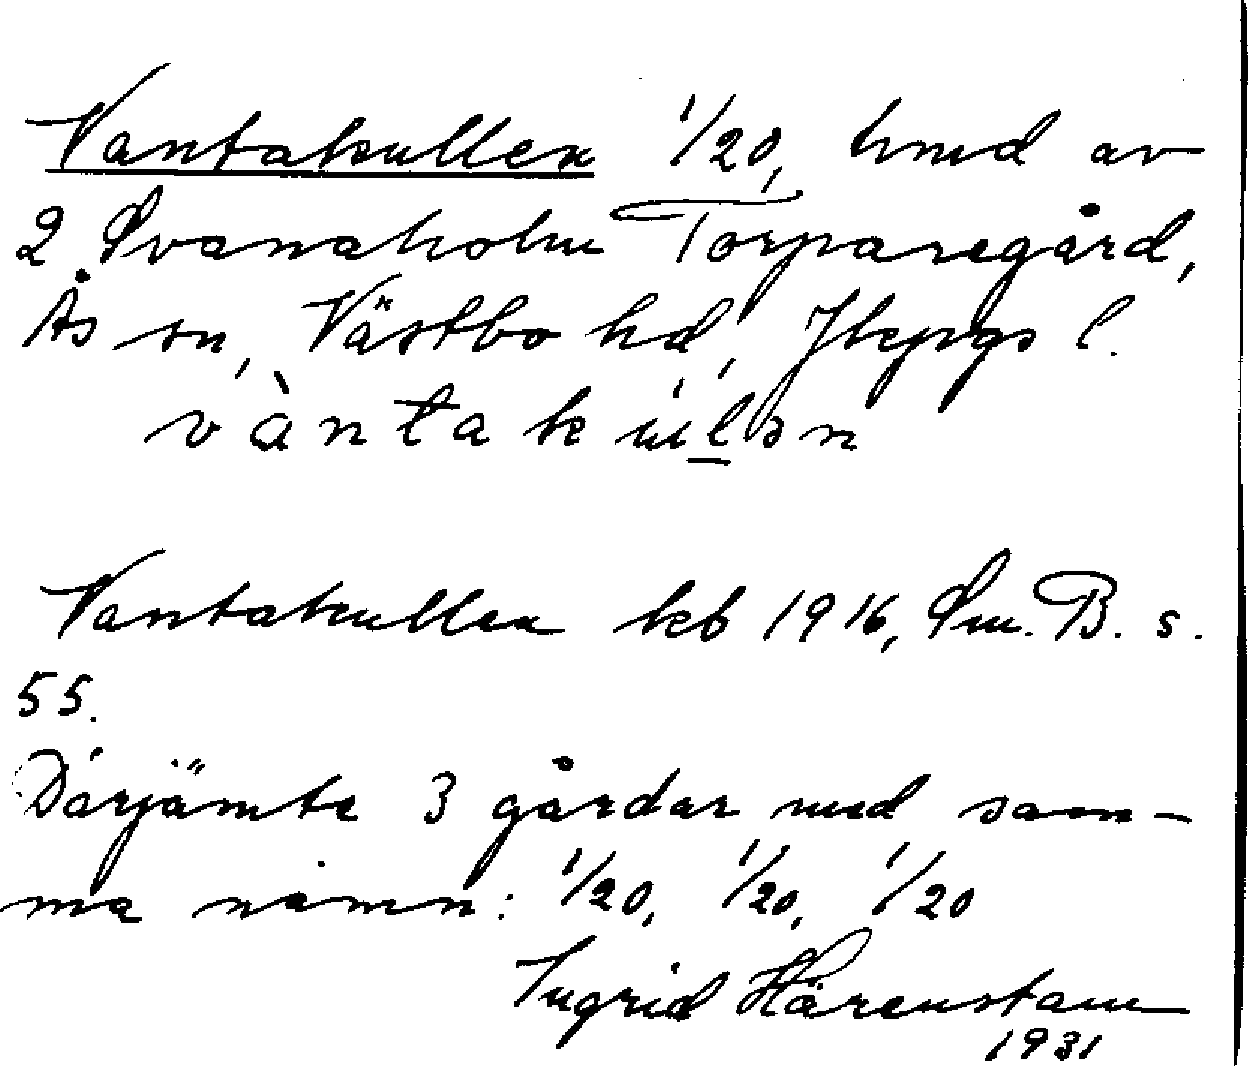 Vantakullen 1/20, hmd av
2 Svanaholm Torparegård,
Ås sn, Västbo hd, Jkpgs l.
vàntakúlən
Vantakullen kb 1916, Sm. B. s.
55.
Därjämte 3 gårdar med sam-
ma namn: 1/20, 1/20, 1/20
Ingrid Härenstam
1931